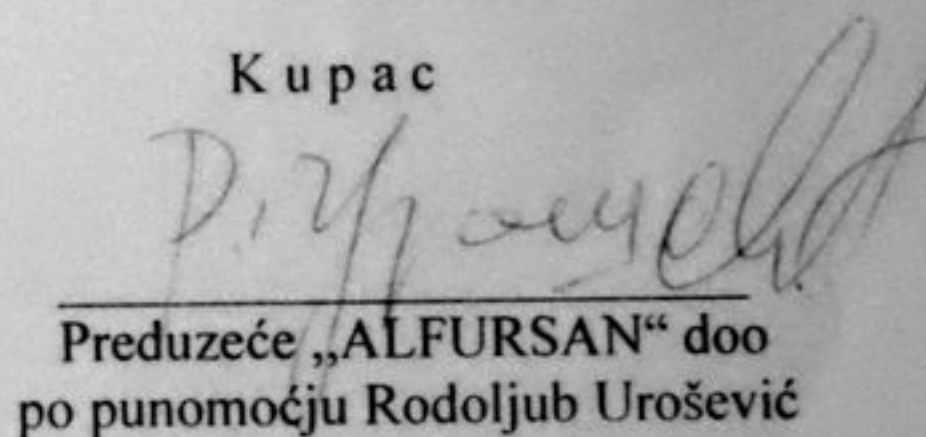 Kupac
Preduzeće „ALFURSAN“ doo
po punomoćju Rodoljub Urošević